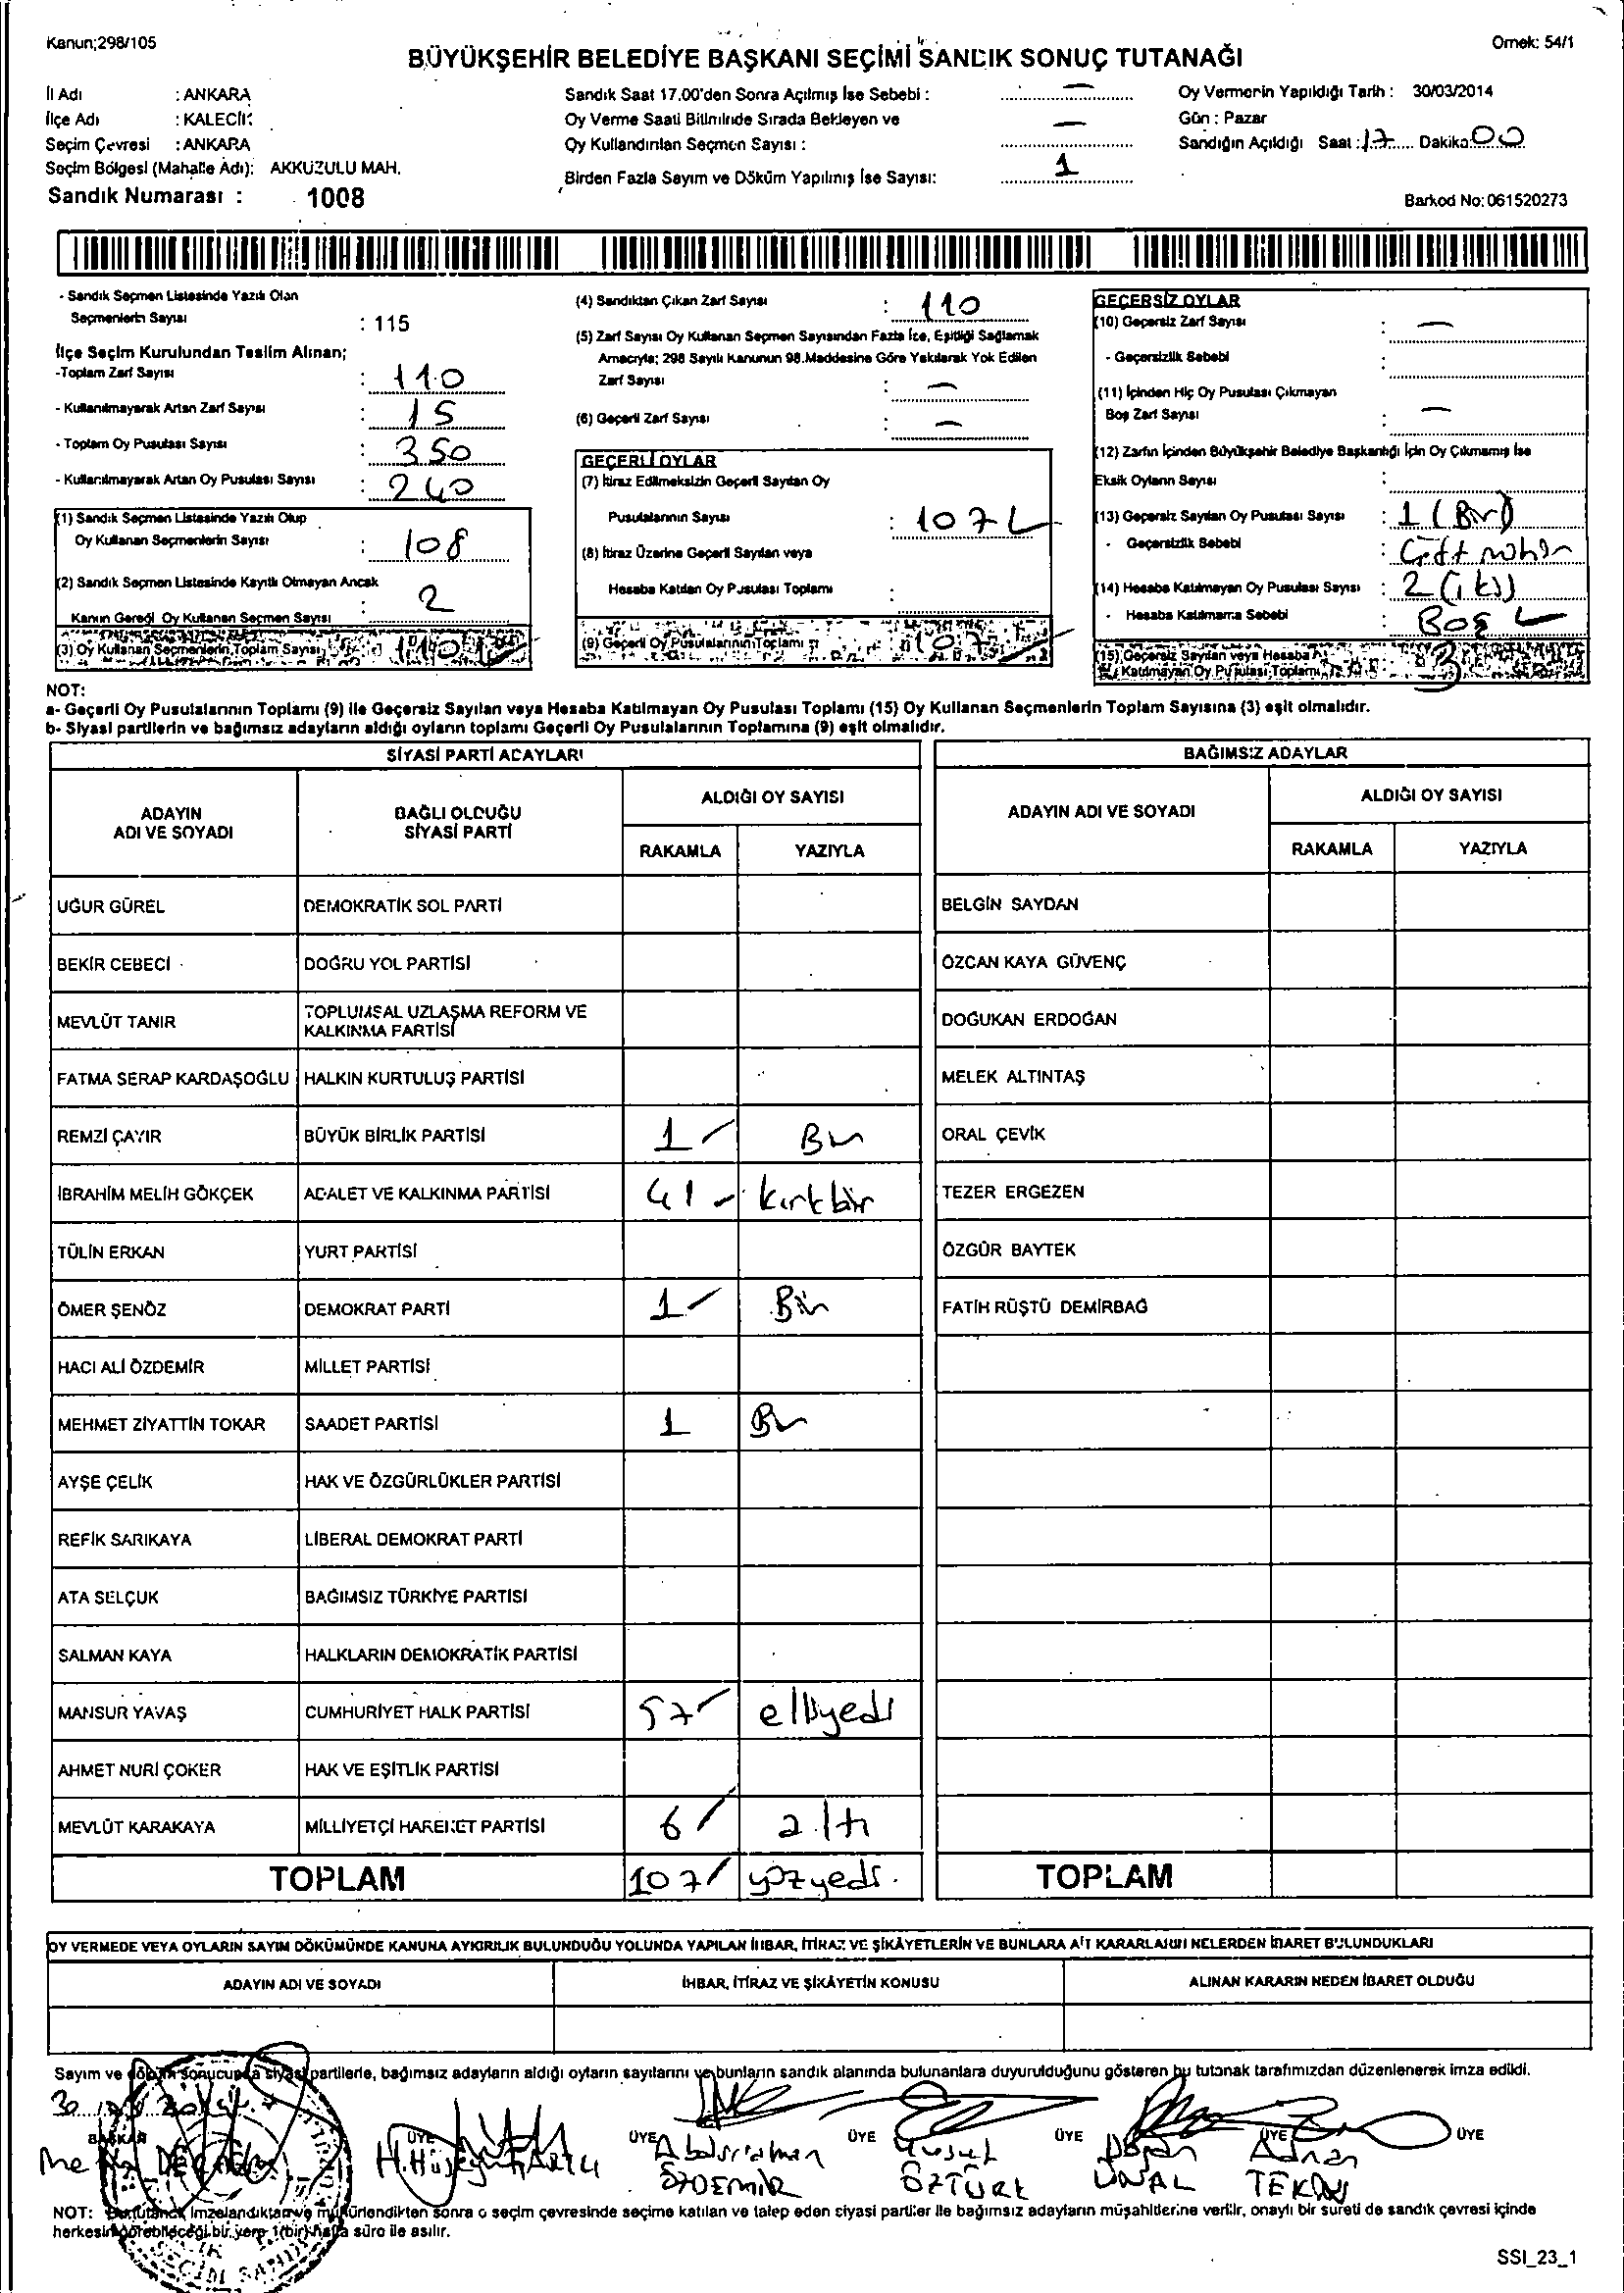 Kanun;298/105
Örnek: 54/1
BÜYÜKŞEHİR BELEDİYE BAŞKANI SEÇİMİ SANDIK SONUÇ TUTANAĞI
İl Adı : ANKARA
İlçe Adı : KALECİK
Seçim Çevresi : ANKARA
Seçim Bölgesi (Mahalle Adı): AKKUZULU MAH.
Sandık Numarası : 1008
Sandık Saat 17.00'den Sonra Açılmış İse Sebebi : —
Oy Verme Saati Bitiminde Sırada Bekleyen ve
Oy Kullandırılan Seçmen Sayısı : —
Birden Fazla Sayım ve Döküm Yapılmış İse Sayısı: 1
Oy Vermenin Yapıldığı Tarih : 30/03/2014
Gün : Pazar
Sandığın Açıldığı Saat : 17 Dakika 00
Barkod No: 061520273
- Sandık Seçmen Listesinde Yazılı Olan
Seçmenlerin Sayısı : 115
İlçe Seçim Kurulundan Teslim Alınan;
-Toplam Zarf Sayısı : 110
- Kullanılmayarak Artan Zarf Sayısı : 15
- Toplam Oy Pusulası Sayısı : 350
- Kullanılmayarak Artan Oy Pusulası Sayısı : 240
(1) Sandık Seçmen Listesinde Yazılı Olup
Oy Kullanan Seçmenlerin Sayısı : 108
(2) Sandık Seçmen Listesinde Kayıtlı Olmayan Ancak
Kanun Gereği Oy Kullanan Seçmen Sayısı : 2
(3) Oy Kullanan Seçmenlerin Toplam Sayısı 110
(4) Sandıktan Çıkan Zarf Sayısı : 110
(5) Zarf Sayısı Oy Kullanan Seçmen Sayısından Fazla İse, Eşitliği Sağlamak
Amacıyla; 298 Sayılı Kanunun 98.Maddesine Göre Yakılarak Yok Edilen
Zarf Sayısı : —
(6) Geçerli Zarf Sayısı : —
GEÇERLİ OYLAR
(7) İtiraz Edilmeksizin Geçerli Sayılan Oy
Pusulalarının Sayısı : 107
(8) İtiraz Üzerine Geçerli Sayılan veya
Hesaba Katılan Oy Pusulası Toplamı :
(9) Geçerli Oy Pusulalarının Toplamı : 107
GEÇERSİZ OYLAR
(10) Geçersiz Zarf Sayısı : —
- Geçersizlik Sebebi :
(11) İçinden Hiç Oy Pusulası Çıkmayan
Boş Zarf Sayısı : —
(12) Zarfın İçinden Büyükşehir Belediye Başkanlığı İçin Oy Çıkmamış İse
Eksik Oyların Sayısı :
(13) Geçersiz Sayılan Oy Pusulası Sayısı : 1 (Bir)
- Geçersizlik Sebebi : Çift mühür
(14) Hesaba Katılmayan Oy Pusulası Sayısı : 2 (iki)
- Hesaba Katılmama Sebebi : Boş
(15) Geçersiz Sayılan veya Hesaba
Katılmayan Oy Pusulası Toplamı : 3
NOT:
a- Geçerli Oy Pusulalarının Toplamı (9) ile Geçersiz Sayılan veya Hesaba Katılmayan Oy Pusulası Toplamı (15) Oy Kullanan Seçmenlerin Toplam Sayısına (3) eşit olmalıdır.
b- Siyasi partilerin ve bağımsız adayların aldığı oyların toplamı Geçerli Oy Pusulalarının Toplamına (9) eşit olmalıdır.
SİYASİ PARTİ ADAYLARI
ADAYIN ADI VE SOYADI
BAĞLI OLDUĞU SİYASİ PARTİ
ALDIĞI OY SAYISI
RAKAMLA YAZIYLA
UĞUR GÜREL DEMOKRATİK SOL PARTİ
BEKİR CEBECİ DOĞRU YOL PARTİSİ
MEVLÜT TANIR TOPLUMSAL UZLAŞMA REFORM VE KALKINMA PARTİSİ
FATMA SERAP KARDAŞOĞLU HALKIN KURTULUŞ PARTİSİ
REMZİ ÇAYIR BÜYÜK BİRLİK PARTİSİ 1 Bir
İBRAHİM MELİH GÖKÇEK ADALET VE KALKINMA PARTİSİ 41 kırkbir
TÜLİN ERKAN YURT PARTİSİ
ÖMER ŞENÖZ DEMOKRAT PARTİ 1 Bir
HACI ALİ ÖZDEMİR MİLLET PARTİSİ
MEHMET ZİYATTİN TOKAR SAADET PARTİSİ 1 Bir
AYŞE ÇELİK HAK VE ÖZGÜRLÜKLER PARTİSİ
REFİK SARIKAYA LİBERAL DEMOKRAT PARTİ
ATA SELÇUK BAĞIMSIZ TÜRKİYE PARTİSİ
SALMAN KAYA HALKLARIN DEMOKRATİK PARTİSİ
MANSUR YAVAŞ CUMHURİYET HALK PARTİSİ 57 elliyedi
AHMET NURİ ÇOKER HAK VE EŞİTLİK PARTİSİ
MEVLÜT KARAKAYA MİLLİYETÇİ HAREKET PARTİSİ 6 altı
TOPLAM 107 yüzyedi.
BAĞIMSIZ ADAYLAR
ADAYIN ADI VE SOYADI
ALDIĞI OY SAYISI
RAKAMLA YAZIYLA
BELGİN SAYDAN
ÖZCAN KAYA GÜVENÇ
DOĞUKAN ERDOĞAN
MELEK ALTINTAŞ
ORAL ÇEVİK
TEZER ERGEZEN
ÖZGÜR BAYTEK
FATİH RÜŞTÜ DEMİRBAĞ
TOPLAM
OY VERMEDE VEYA OYLARIN SAYIM DÖKÜMÜNDE KANUNA AYKIRILIK BULUNDUĞU YOLUNDA YAPILAN İHBAR, İTİRAZ VE ŞİKÂYETLERİN VE BUNLARA AİT KARARLARIN NELERDEN İBARET BULUNDUKLARI
ADAYIN ADI VE SOYADI
İHBAR, İTİRAZ VE ŞİKÂYETİN KONUSU
ALINAN KARARIN NEDEN İBARET OLDUĞU
Sayım ve döküm sonucunda siyasi partilerle, bağımsız adayların aldığı oyların sayılarını ve bunların sandık alanında bulunanlara duyurulduğunu gösteren bu tutanak tarafımızdan düzenlenerek imza edildi.
BAŞKAN ÜYE ÜYE ÜYE ÜYE ÜYE ÜYE
Abdurrahman ÖZDEMİR
Yusuf ÖZTÜRK
Doğan ÜNAL
Adnan TEKİN
NOT: Bu tutanak imzalandıktan ve mühürlendikten sonra o seçim çevresinde seçime katılan ve talep eden siyasi partiler ile bağımsız adayların müşahitlerine verilir, onaylı bir sureti de sandık çevresi içinde
herkesin görebileceği bir yere 1(bir) hafta süre ile asılır.
SSI_23_1